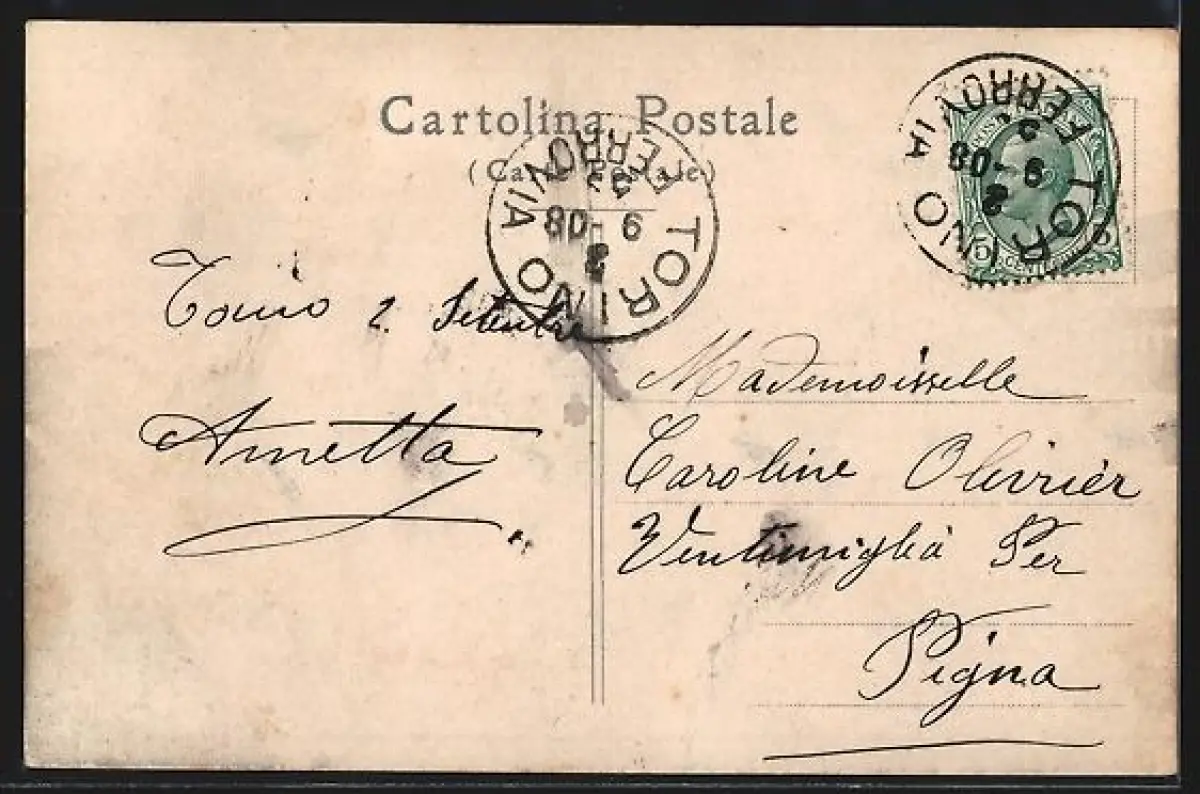 Cartolina Postale
(Carte Postale)
TORINO FERROVIA
2
9-08
TORINO FERROVIA
2
9-08
5 CENT
Torino 2 Setembre
Annetta
Mademoisselle
Caroline Olivrièr
Ventimiglia Per
Pigna